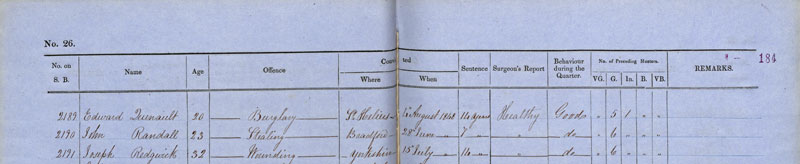 No. 26.
184
No. on S. B. Name Age Offence Convicted Where When Sentence Surgeon's Report Behaviour during the Quarter. No. of Preceding Musters. VG. G. In. B. VB. REMARKS.
2189 Edward 20 Burglary St Helier August 1848 14 Years Healthy Good " 5 1 " "
2190 John Randall 23 Stealing Bradford 28 June " 7 " " do " 6 " " "
2191 Joseph Redgwick 32 Wounding Yorkshire 15 July " 14 " " do " 6 " " "